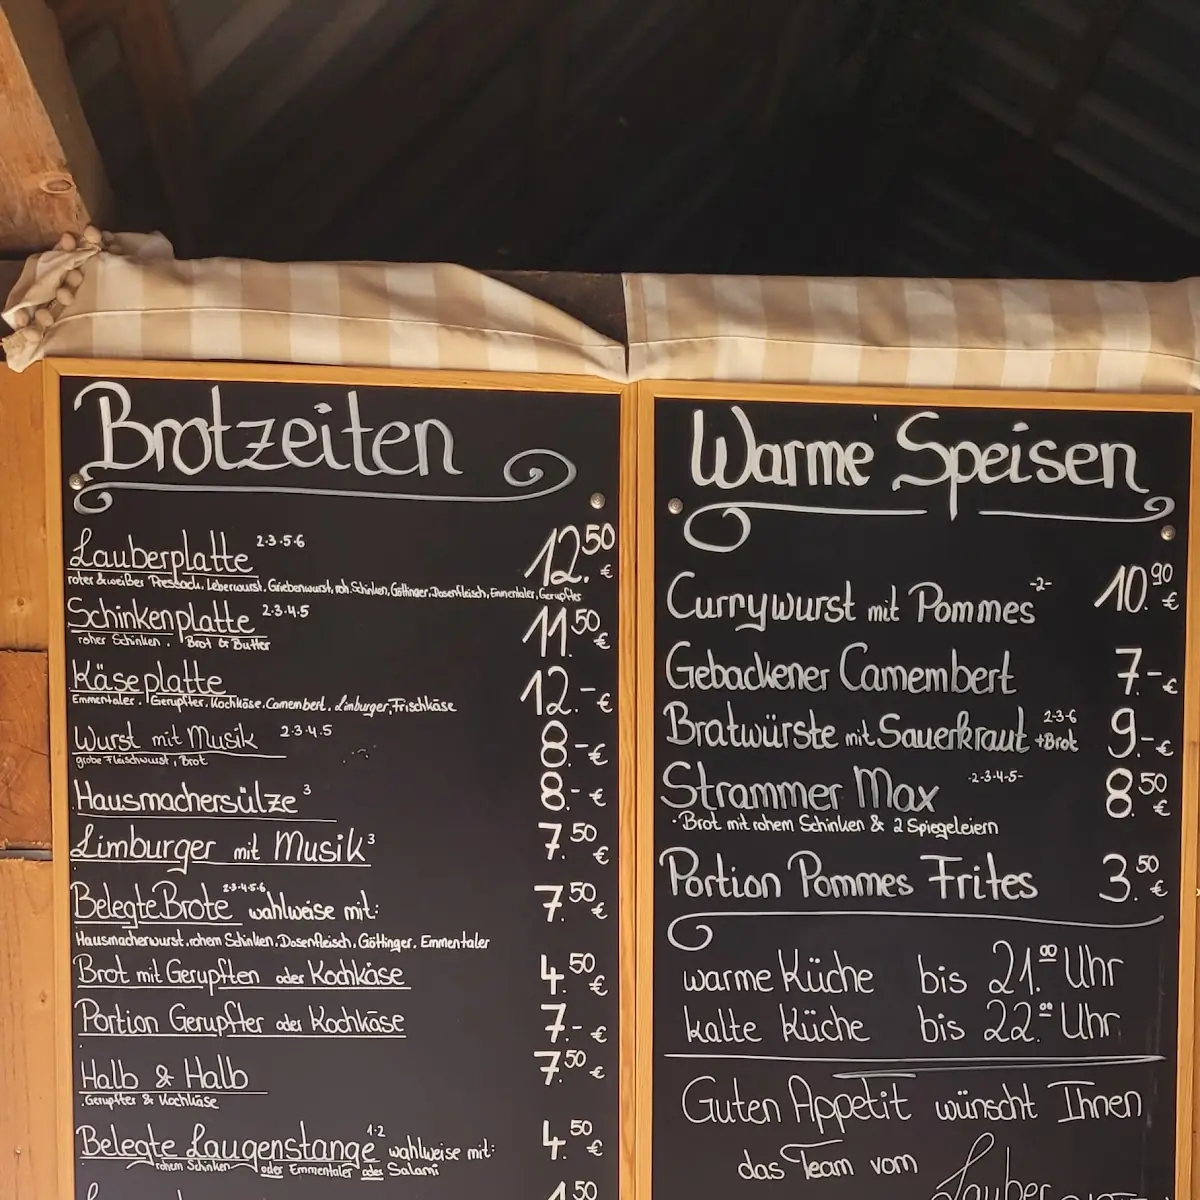 Brotzeiten
Lauberplatte 2·3·5·6 12.50 €
roter & weißer Pressack, Leberwurst, Griebenwurst, roh. Schinken, Göttinger, Dosenfleisch, Emmentaler, Gerupfter
Schinkenplatte 2·3·4·5 11.50 €
roher Schinken, Brot & Butter
Käseplatte 12.- €
Emmentaler, Gerupfter, Kochkäse, Camembert, Limburger, Frischkäse
Wurst mit Musik 2·3·4·5 8.- €
grobe Fleischwurst, Brot
Hausmachersülze 3 8.- €
Limburger mit Musik 3 7.50 €
Belegte Brote 2·3·4·5·6 wahlweise mit: 7.50 €
Hausmacherwurst, rohem Schinken, Dosenfleisch, Göttinger, Emmentaler
Brot mit Gerupften oder Kochkäse 4.50 €
Portion Gerupfter oder Kochkäse 7.- €
Halb & Halb 7.50 €
Gerupfter & Kochkäse
Belegte Laugenstange 1·2 wahlweise mit: 4.50 €
rohem Schinken oder Emmentaler oder Salami
Warme Speisen
Currywurst mit Pommes -2- 10.90 €
Gebackener Camembert 7.- €
Bratwürste mit Sauerkraut +Brot 2·3·6 9.- €
Strammer Max -2·3·4·5- 8.50 €
· Brot mit rohem Schinken & 2 Spiegeleiern
Portion Pommes Frites 3.50 €
warme Küche bis 21.00 Uhr
kalte Küche bis 22.00 Uhr
Guten Appetit wünscht Ihnen
das Team vom
Lauber